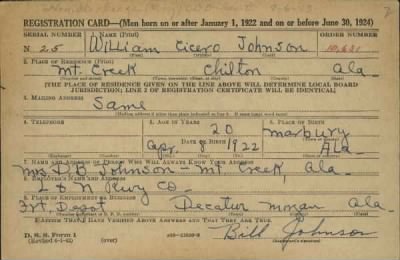 REGISTRATION CARD—(Men born on or after January 1, 1922 and on or before June 30, 1924)
SERIAL NUMBER 1. NAME (Print) ORDER NUMBER
N 25 William Cicero Johnson 10,621
2. PLACE OF RESIDENCE (Print)
Mt. Creek Chilton Ala
(THE PLACE OF RESIDENCE GIVEN ON THE LINE ABOVE WILL DETERMINE LOCAL BOARD
JURISDICTION; LINE 2 OF REGISTRATION CERTIFICATE WILL BE IDENTICAL)
3. MAILING ADDRESS
Same
(Mailing address if other than place indicated on line 2. If same insert word same)
4. TELEPHONE 5. AGE IN YEARS 6. PLACE OF BIRTH
20 Marbury
DATE OF BIRTH
Apr. 8 1922 Ala
7. NAME AND ADDRESS OF PERSON WHO WILL ALWAYS KNOW YOUR ADDRESS
Mrs D B Johnson - Mt Creek Ala
8. EMPLOYER'S NAME AND ADDRESS
L & N Rwy Co.
9. PLACE OF EMPLOYMENT OR BUSINESS
Frt. Depot Decatur Morgan Ala
I AFFIRM THAT I HAVE VERIFIED ABOVE ANSWERS AND THAT THEY ARE TRUE.
D. S. S. Form 1
(Revised 6-1-42) (over)
Bill Johnson